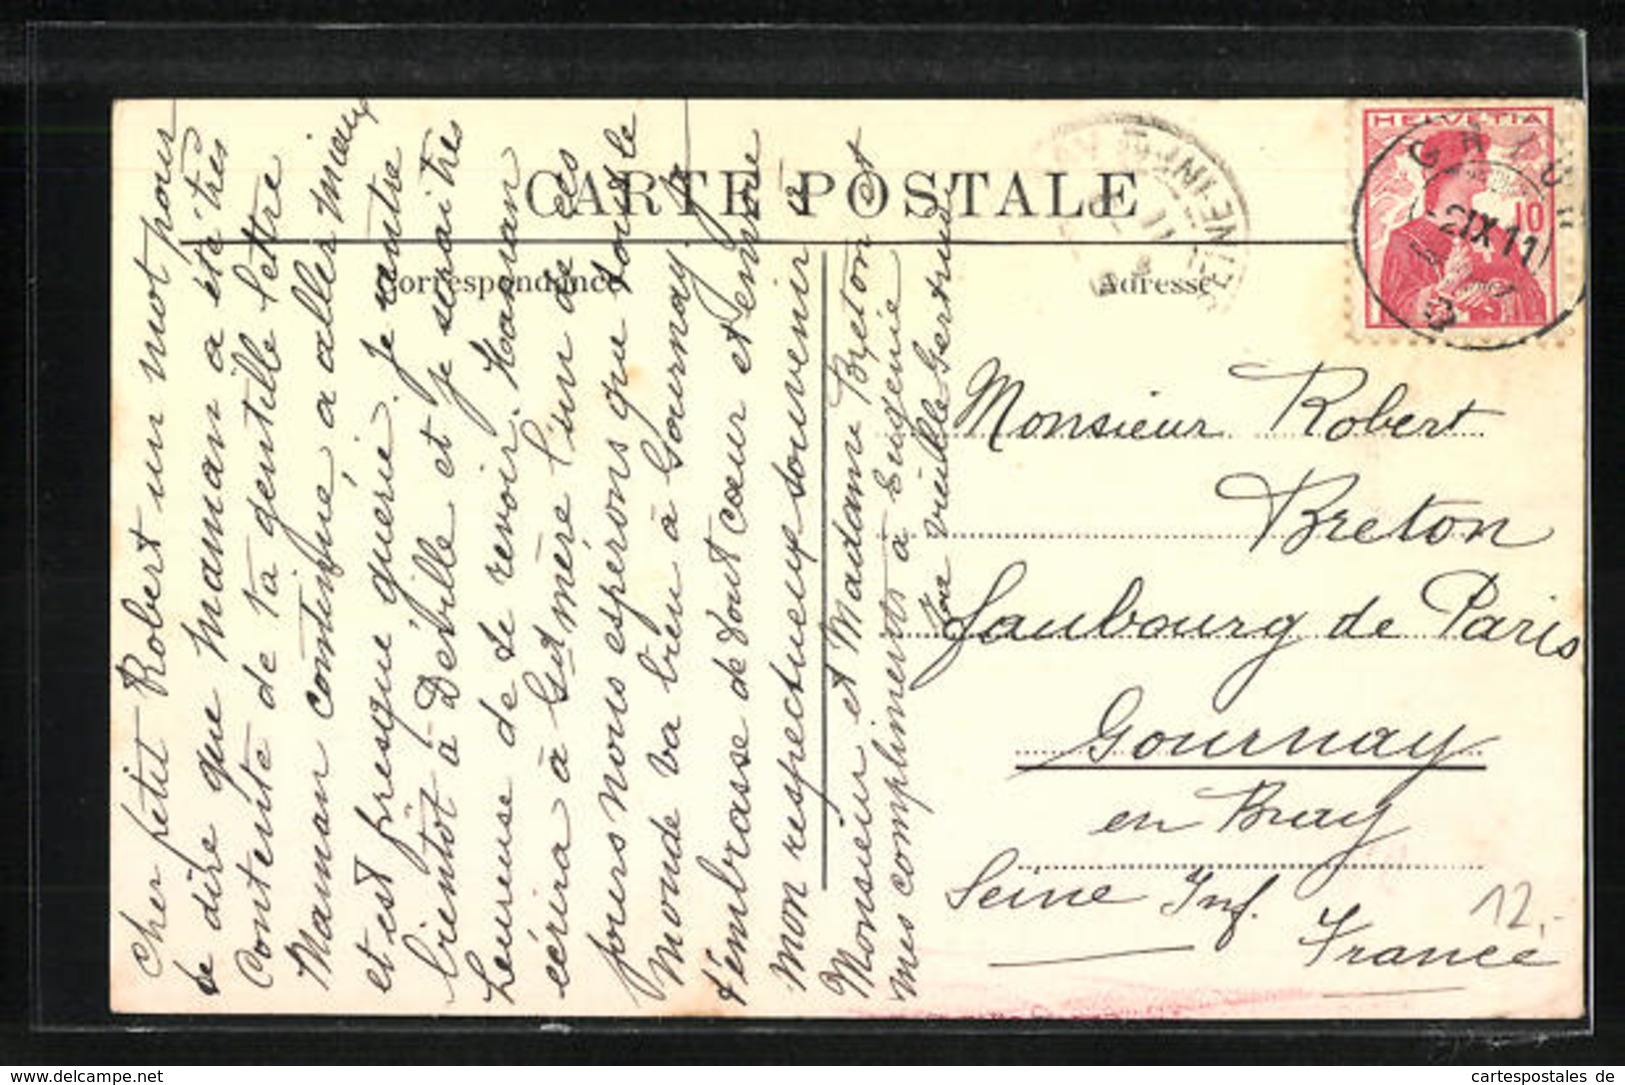 CARTE POSTALE
Correspondance
Adresse
HELVETIA
10
2 IX 11
Cher petit Robert un mot pour
te dire que maman a été très
contente de ta gentille lettre
Maman continue à aller mieux
et est presque guérie. Je rentre
bientôt à Déville et je serai très
heureuse de te revoir. Maman
écrira à ta mère l'un de ces
jours nous espérons que tout le
monde va bien à Gournay. Je
t'embrasse de tout cœur et envoie
mon respectueux souvenir à
Monsieur et Madame Breton et
mes compliments à Eugénie
Ta vieille Gertrude
Monsieur Robert
Breton
faubourg de Paris
Gournay
en Bray
Seine Inf.
France
12.-
www.delcampe.net
cartespostales de